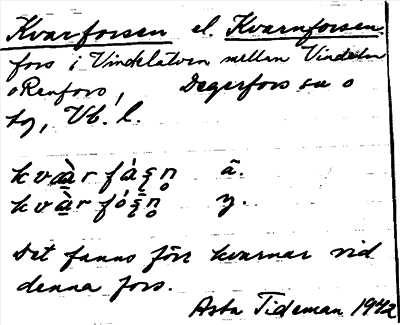 Kvarforsen el. Kvarnforsen.
fors i Vindelälven mellan Vindeln
o Renfors, Degerfors sn o
tg, Vb. l.
kvà̱r fȧʂn̥ ä.
kvà̱r fȯʂn̥ y.
Det fanns förr kvarnar vid
denna fors.
Asta Tideman 1942